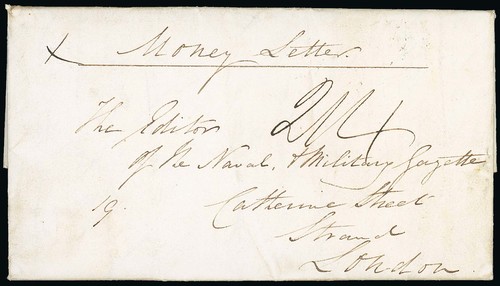 x Money Letter.
The Editor 2/4
of the Naval, & Military Gazette
19. Catherine Street
Strand
London.